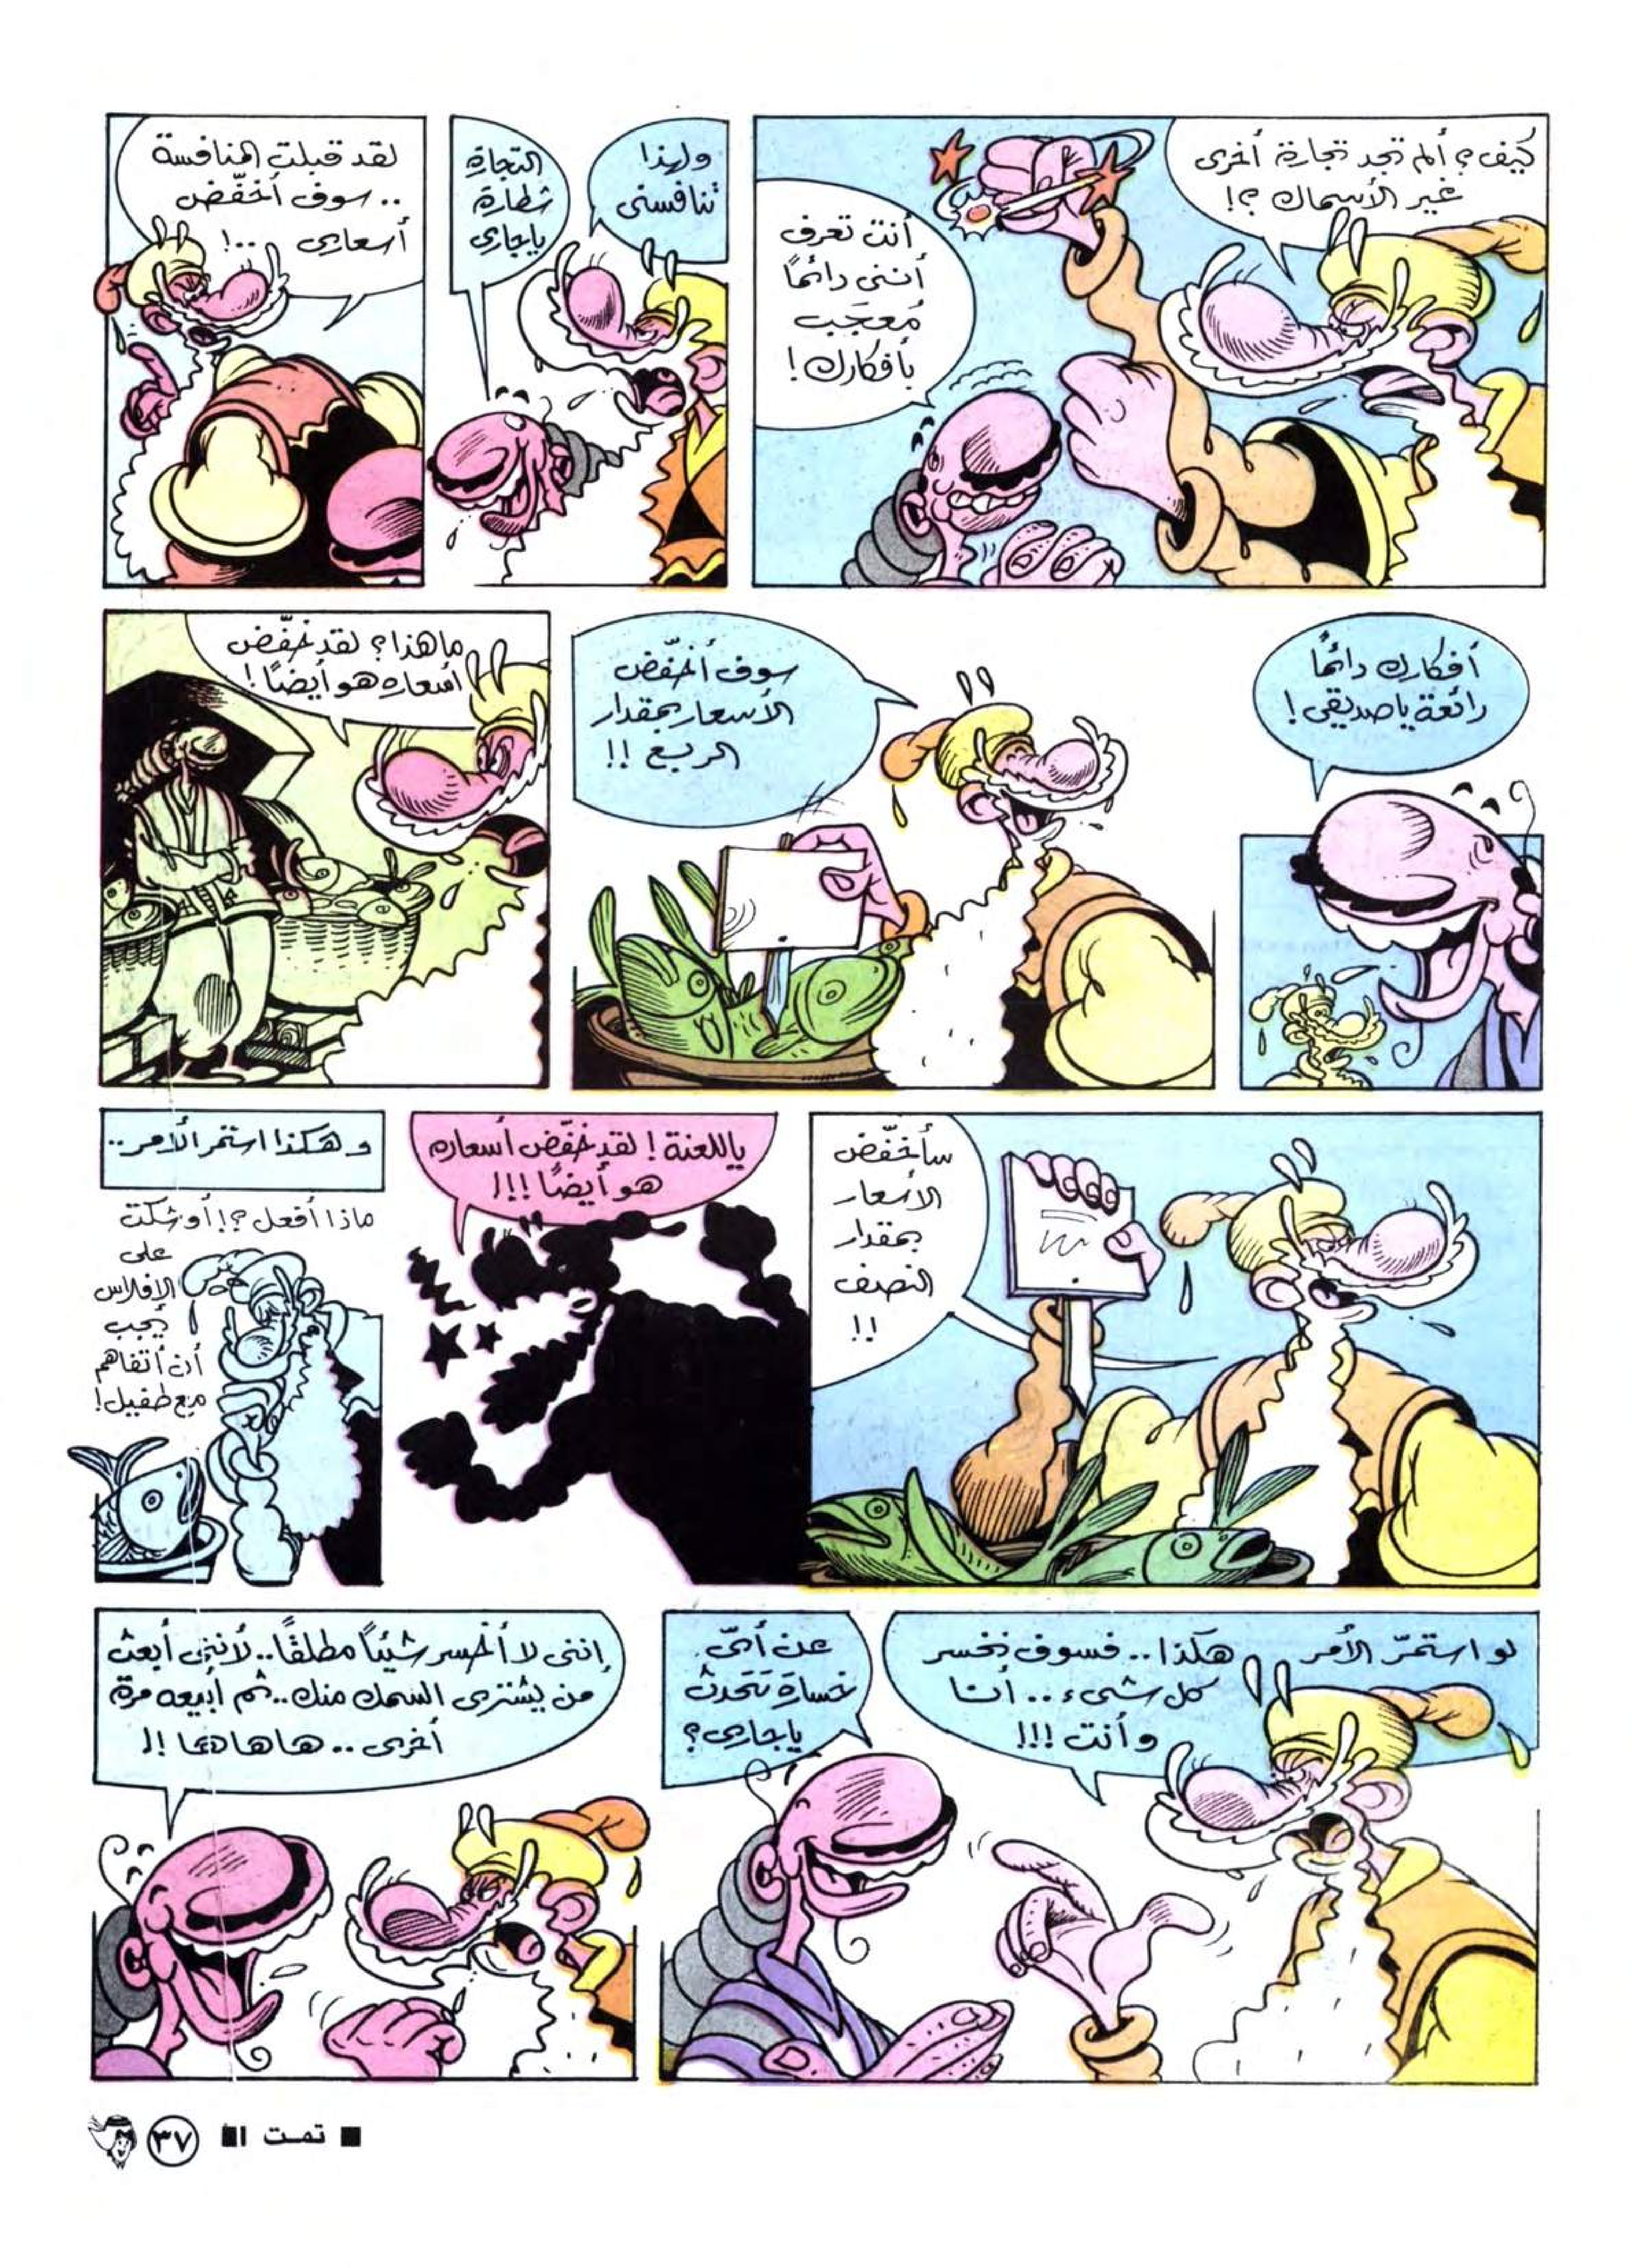 كيف؟ ألم تجد تجارة أخرى
غير الأسماك؟!
أنت تعرف
أننى دائماً
مُعجَب
بأفكارك!
ولهذا
تنافسنى
التجارة
شطارة
ياجارى
لقد قبلت المنافسة
.. سوف أخفّض
أسعارى ..!
أفكارك دائماً
رائعة ياصديقى!
سوف أخفّض
الأسعار بمقدار
الربع !!
ما هذا؟ لقد خفّض
أسعاره هو أيضًا!
سأخفّض
الأسعار
بمقدار
النصف
!!
ياللعنة! لقد خفّض أسعاره
هو أيضًا !!!
وهكذا استمر الأمر..
ماذا أفعل؟! أوشكت
على
الإفلاس
! يجب
أن أتفاهم
مع طفيل!
لو استمرّ الأمر هكذا.. فسوف نخسر
كل شىء.. أنا
وأنت !!!
عن أىّ
خسارة تتحدث
ياجارى؟
إننى لا أخسر شيئاً مطلقًا.. لأننى أبعث
من يشترى السمك منك.. ثم أبيعه مرة
أخرى.. هاهاها !!
■ تمت !■
٣٧